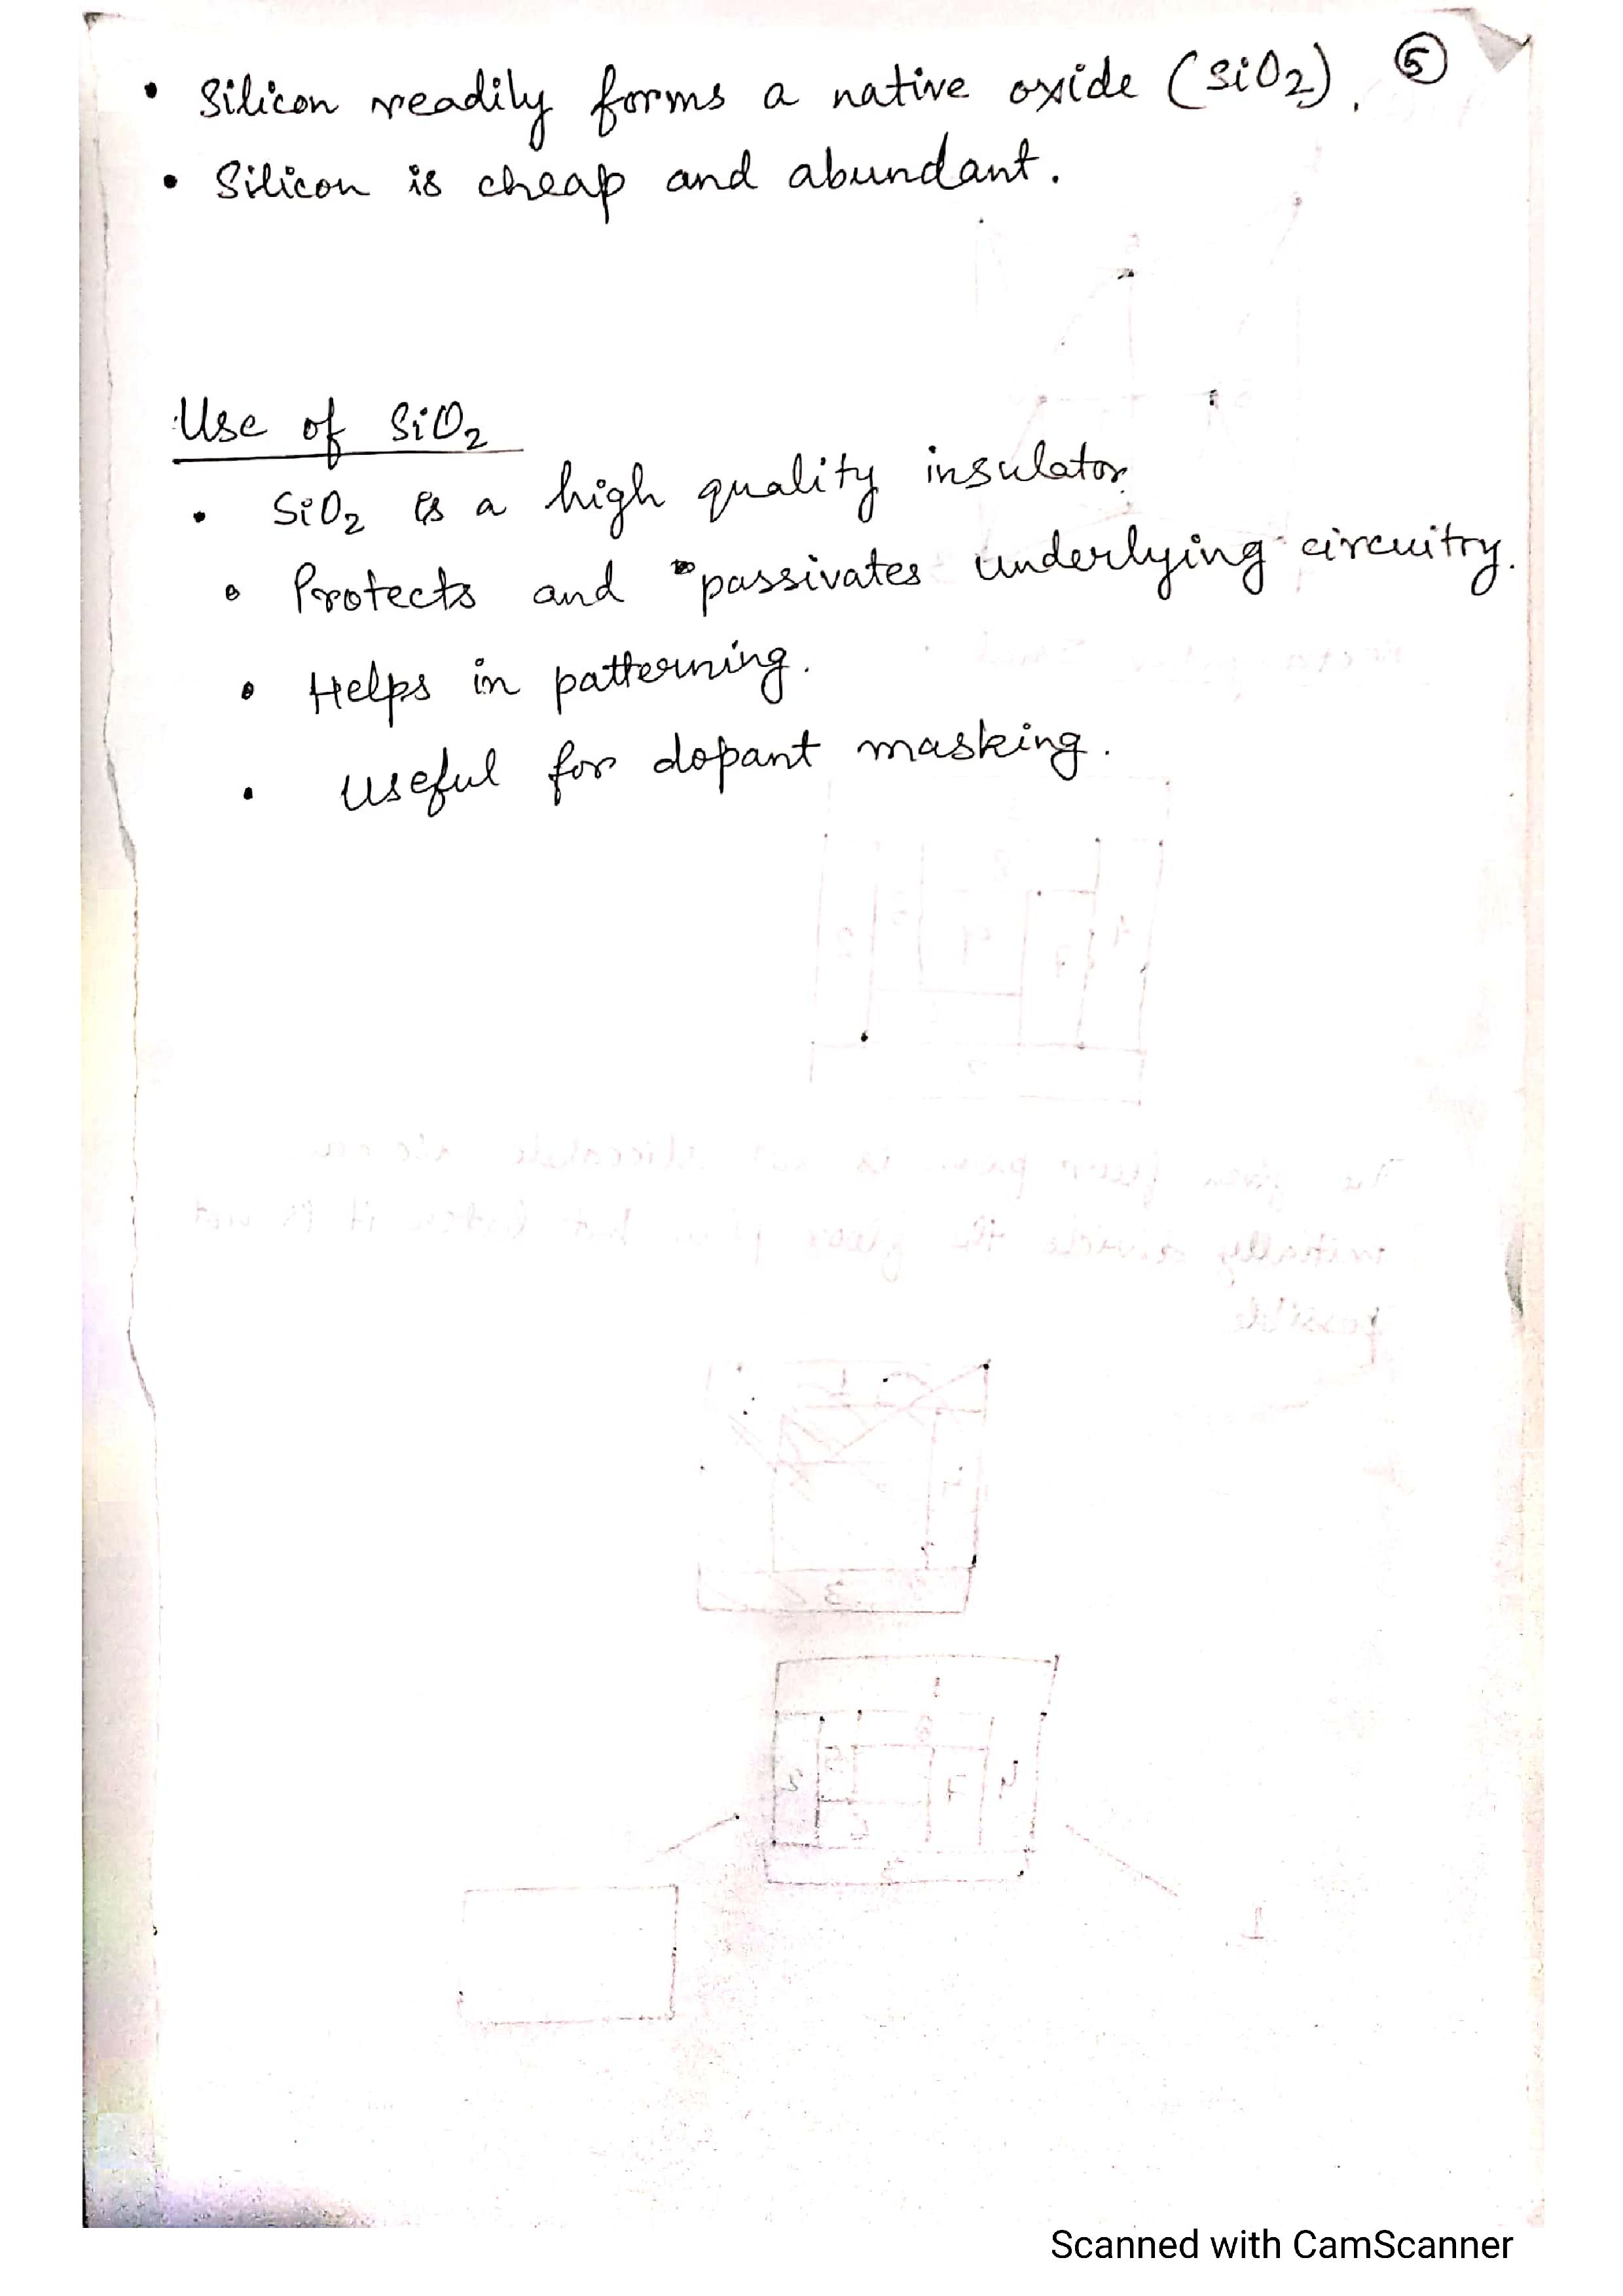 • Silicon readily forms a native oxide (SiO2). 5
• Silicon is cheap and abundant.
Use of SiO2
• SiO2 is a high quality insulator.
• Protects and passivates underlying circuitry.
• Helps in patterning.
• useful for dopant masking.
Scanned with CamScanner